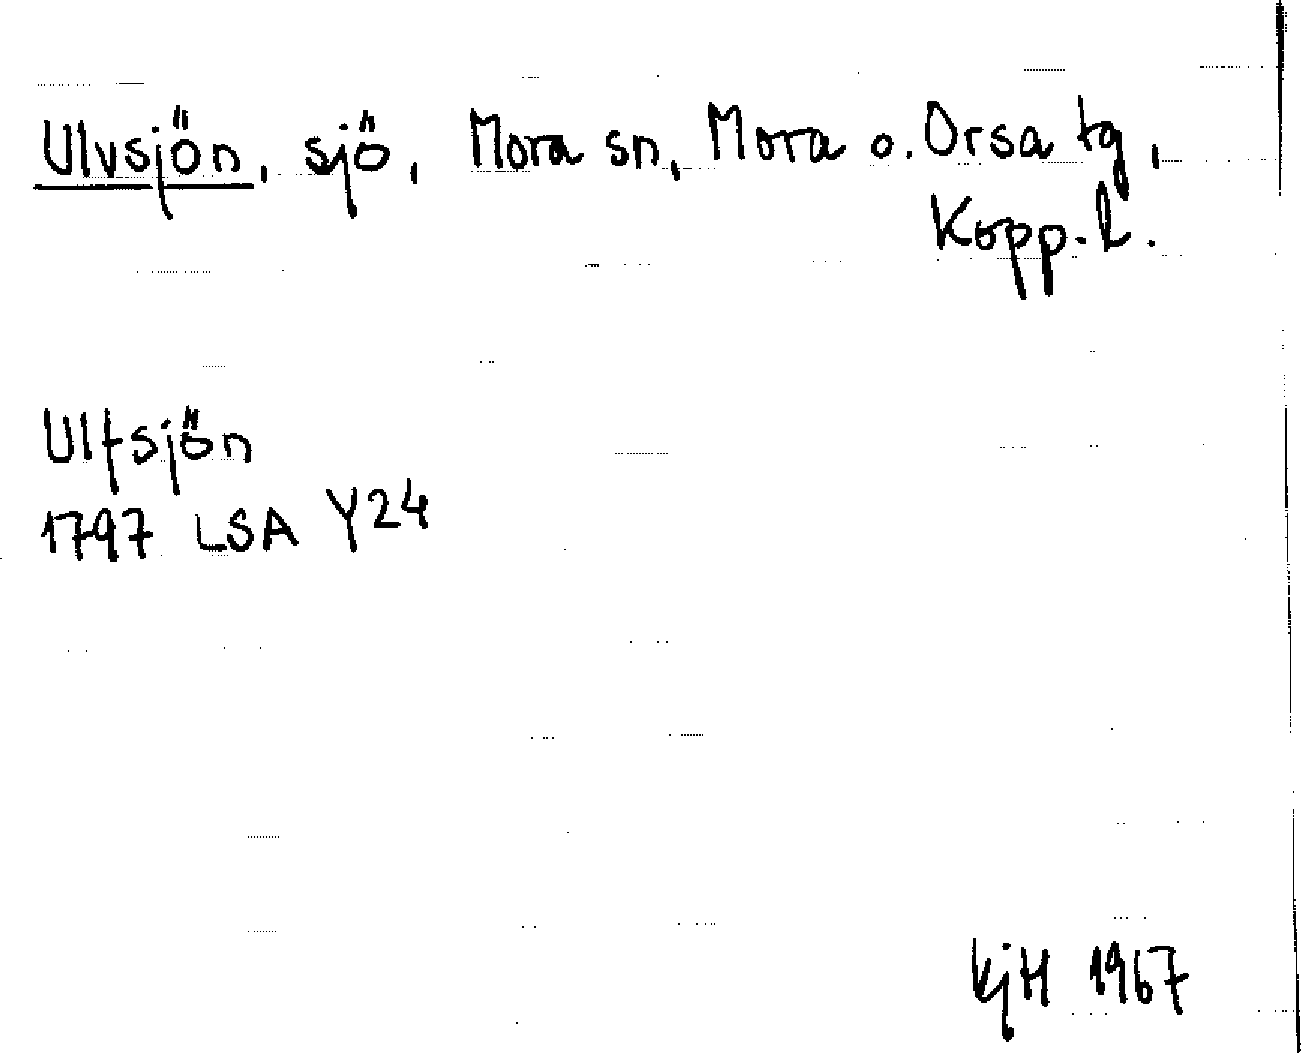 Ulvsjön, sjö, Mora sn, Mora o. Orsa tg,
Kopp. l.
Ulfsjön
1797 LSA Y24
KjH 1967